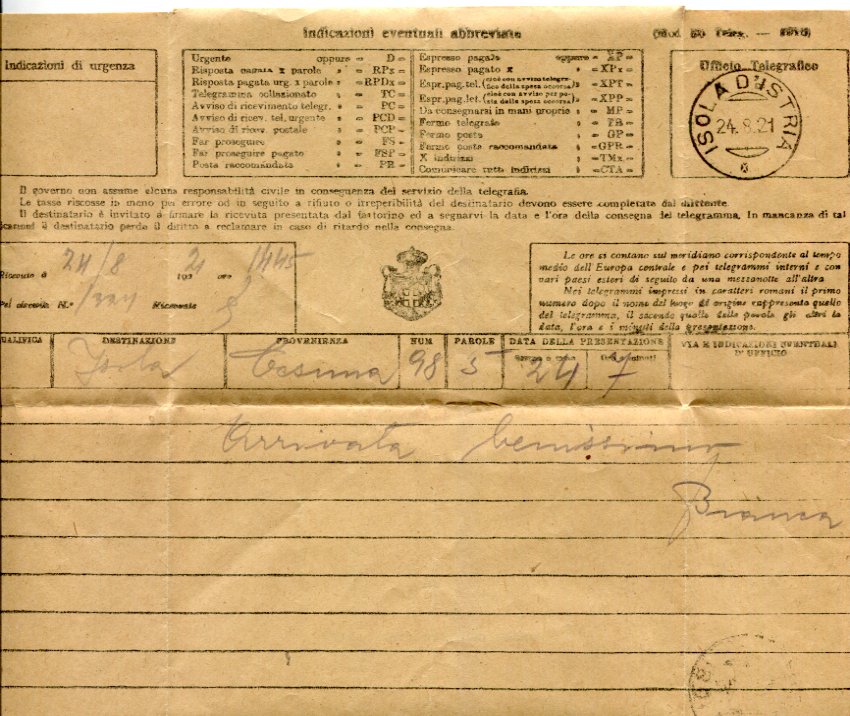 Indicazioni eventuali abbreviate
(Mod. 30 Teleg. —
Indicazioni di urgenza
Urgente oppure = D =
Risposta pagata x parole » =RPx=
Risposta pagata urg. x parole » =RPDx=
Telegramma collazionato » = TC =
Avviso di ricevimento telegr. » = PC =
Avviso di ricev. tel. urgente » = PCD =
Avviso di ricev. postale » = PCP =
Far proseguire » = FS =
Far proseguire pagato » = FSP =
Posta raccomandata » = PR =
Espresso pagato oppure = XP =
Espresso pagato x » =XPx=
Espr.pag.tel. (cioè con avviso telegrafico della spesa occorsa) » =XPT=
Espr.pag.let. (cioè con avviso per posta della spesa occorsa) » =XPP=
Da consegnarsi in mani proprie » = MP =
Fermo telegrafo » = TR =
Fermo posta » = GP =
Fermo posta raccomandata » =GPR=
X indirizzi » =TMx=
Comunicare tutti indirizzi » =CTA=
Ufficio Telegrafico
ISOLA D'ISTRIA
24.8.21
Il governo non assume alcuna responsabilità civile in conseguenza del servizio della telegrafia.
Le tasse riscosse in meno per errore od in seguito a rifiuto o irreperibilità del destinatario devono essere completate dal mittente.
Il destinatario è invitato a firmare la ricevuta presentata dal fattorino ed a segnarvi la data e l'ora della consegna del telegramma. In mancanza di tal
il destinatario perde il diritto a reclamare in caso di ritardo nella consegna.
Ricevuto il 24/8 192 1 ore 1445
Pel circuito N.° Ricevente
Le ore si contano sul meridiano corrispondente al tempo
medio dell'Europa centrale e pei telegrammi interni e con
vari paesi esteri di seguito da una mezzanotte all'altra
Nei telegrammi impressi in caratteri romani il primo
numero dopo il nome del luogo di origine rappresenta quello
del telegramma, il secondo quello delle parole gli altri la
data, l'ora e i minuti della presentazione.
QUALIFICA DESTINAZIONE PROVENIENZA NUM PAROLE DATA DELLA PRESENTAZIONE VIA E INDICAZIONI EVENTUALI
Giorno e mese Ore e minuti D'UFFICIO
Isola 98 5 24 7
Arrivata benissimo
Bianca